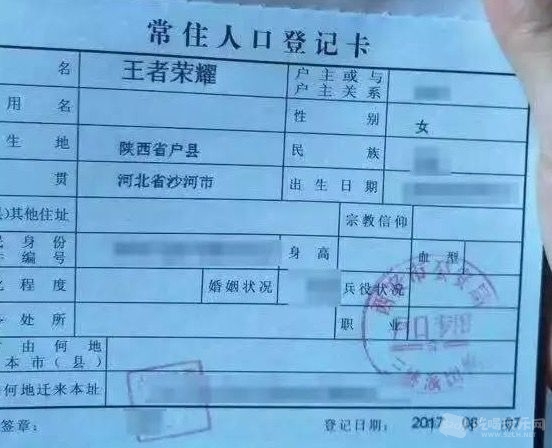 常住人口登记卡
名 王者荣耀 户主或与
户主关系
用名 性别 女
生地 陕西省户县 民族
贯 河北省沙河市 出生日期
)其他住址 宗教信仰
身份
编号 身高 血型
程度 婚姻状况 兵役状况
处所 职业
由何地
本市(县)
何地迁来本址
签章: 登记日期: 2017 06 07